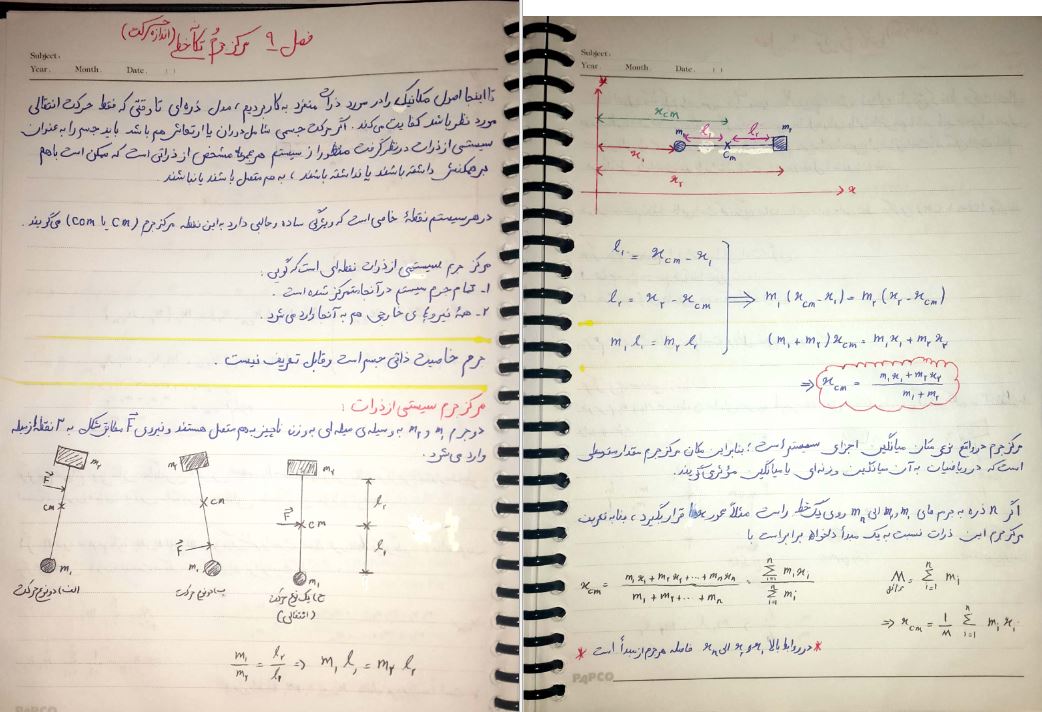 فصل ۹ مرکز جرم و تکانه خطی (اندازه حرکت)
Subject:
Year. Month. Date. ( )
تا اینجا اصول مکانیک را در مورد ذرات منفرد به کار بردیم، مدل ذره‌ای تا وقتی که فقط حرکت انتقالی
مورد نظر باشد کفایت می‌کند. اگر حرکت جسمی شامل دوران یا ارتعاش هم باشد باید جسم را به عنوان
سیستمی از ذرات در نظر گرفت منظور از سیستم هر مجموعه مشخص از ذراتی است که ممکن است با هم
برهمکنش داشته باشند یا نداشته باشند، به هم متصل باشند یا نباشند
در هر سیستم نقطهٔ خاصی است که ویژگی ساده و جالبی دارد به این نقطه مرکز جرم (cm یا com) می‌گویند.
مرکز جرم سیستمی از ذرات نقطه‌ای است که گویی:
۱- تمام جرم سیستم در آنجا متمرکز شده است.
۲- همهٔ نیروهای خارجی هم به آنجا وارد می‌شود.
جرم خاصیت ذاتی جسم است و قابل تعریف نیست.
مرکز جرم سیستمی از ذرات:
دو جرم m₁ و m₂ به وسیله‌ی میله‌ای به وزن ناچیز به هم متصل هستند و نیروی F⃗ مطابق شکل به ۳ نقطه از میله
وارد می‌شود.
m₂ m₂ m₂
F⃗ cm cm F⃗ cm l₂
F⃗ l₁
m₁ m₁ m₁
الف) دو نوع حرکت
ب) دو نوع حرکت
ج) یک نوع حرکت
(انتقالی)
m₁/m₂ = l₂/l₁ => m₁ l₁ = m₂ l₂
PAPCO
Subject:
Year. Month. Date. ( )
y
x_cm
m₁ l₁ l₂ m₂
x₁ cm
x₂
x
l₁ = x_cm - x₁
l₂ = x₂ - x_cm => m₁(x_cm - x₁) = m₂(x₂ - x_cm)
m₁ l₁ = m₂ l₂ (m₁ + m₂) x_cm = m₁x₁ + m₂x₂
=> x_cm = (m₁x₁ + m₂x₂)/(m₁ + m₂)
مرکز جرم در واقع نوعی مکان میانگین اجزای سیستم است؛ بنابراین مکان مرکز جرم مقدار متوسطی
است که در ریاضیات به آن میانگین وزنه‌ای یا میانگین مؤثر می‌گویند.
اگر n ذره به جرم های m₁ الی m_n روی یک خط راست مثلاً محور x قرار بگیرد، بنا به تعریف
مرکز جرم این ذرات نسبت به یک مبدأ دلخواه برابر است با
x_cm = (m₁x₁ + m₂x₂ + ... + m_n x_n)/(m₁ + m₂ + ... + m_n) = (∑_{i=1}^{n} m_i x_i)/(∑_{i=1}^{n} m_i) M = ∑_{i=1}^{n} m_i
=> x_cm = 1/M ∑_{i=1}^{n} m_i x_i
* در روابط بالا x₁ و x₂ الی x_n فاصله هر جرم از مبدأ است *
PAPCO